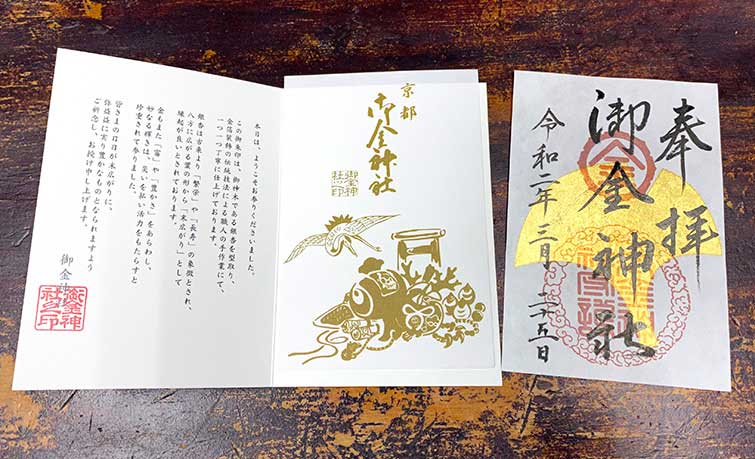 本日は、ようこそお参りくださいました。
この御朱印は、御神木である銀杏を型取り、
金箔装飾の伝統技法による職人の手作業にて、
一つ一つ丁寧に仕上げております。
銀杏は古来より「繁栄」や「長寿」の象徴とされ、
八方に広がる葉の形から「末広がり」として
縁起が良いとされております。
金もまた「富」や「豊かさ」をあらわし、
妙なる輝きは、災いを払い活力をもたらすと
珍重されて参りました。
皆さまの日日が末広がりに、
弥益益に実り豊かなものとなられますよう
ご祈念し、お授け申し上げます。
御金神
御金神
社之印
京都
御金神社
御金神
社之印
奉拝
御金神社
令和二年三月二十五日